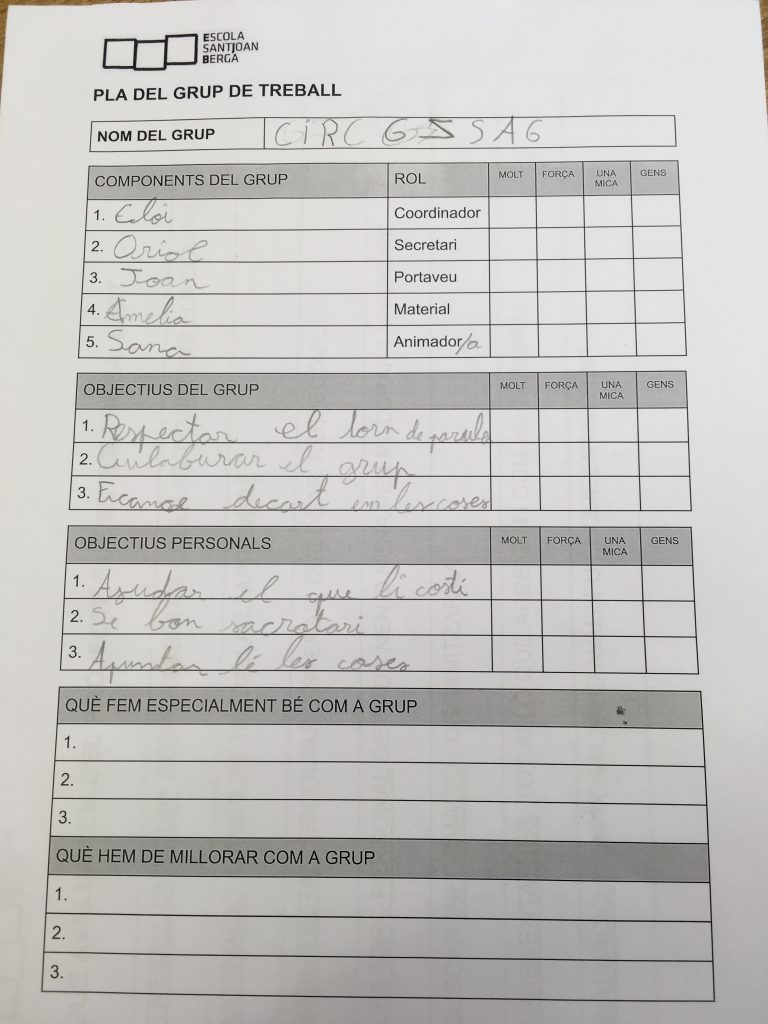 ESCOLA
SANTJOAN
BERGA
PLA DEL GRUP DE TREBALL
NOM DEL GRUP CIRC G SAG
COMPONENTS DEL GRUP ROL MOLT FORÇA UNA MICA GENS
1. Eloi Coordinador
2. Oriol Secretari
3. Joan Portaveu
4. Amelia Material
5. Sana Animador/a
OBJECTIUS DEL GRUP MOLT FORÇA UNA MICA GENS
1. Respectar el torn de paraula
2. Culaburar el grup
3. decart em les coses
OBJECTIUS PERSONALS MOLT FORÇA UNA MICA GENS
1. Asudar el que li costi
2. Se bon sacratari
3. Apuntar lé les coses
QUÈ FEM ESPECIALMENT BÉ COM A GRUP
1.
2.
3.
QUÈ HEM DE MILLORAR COM A GRUP
1.
2.
3.